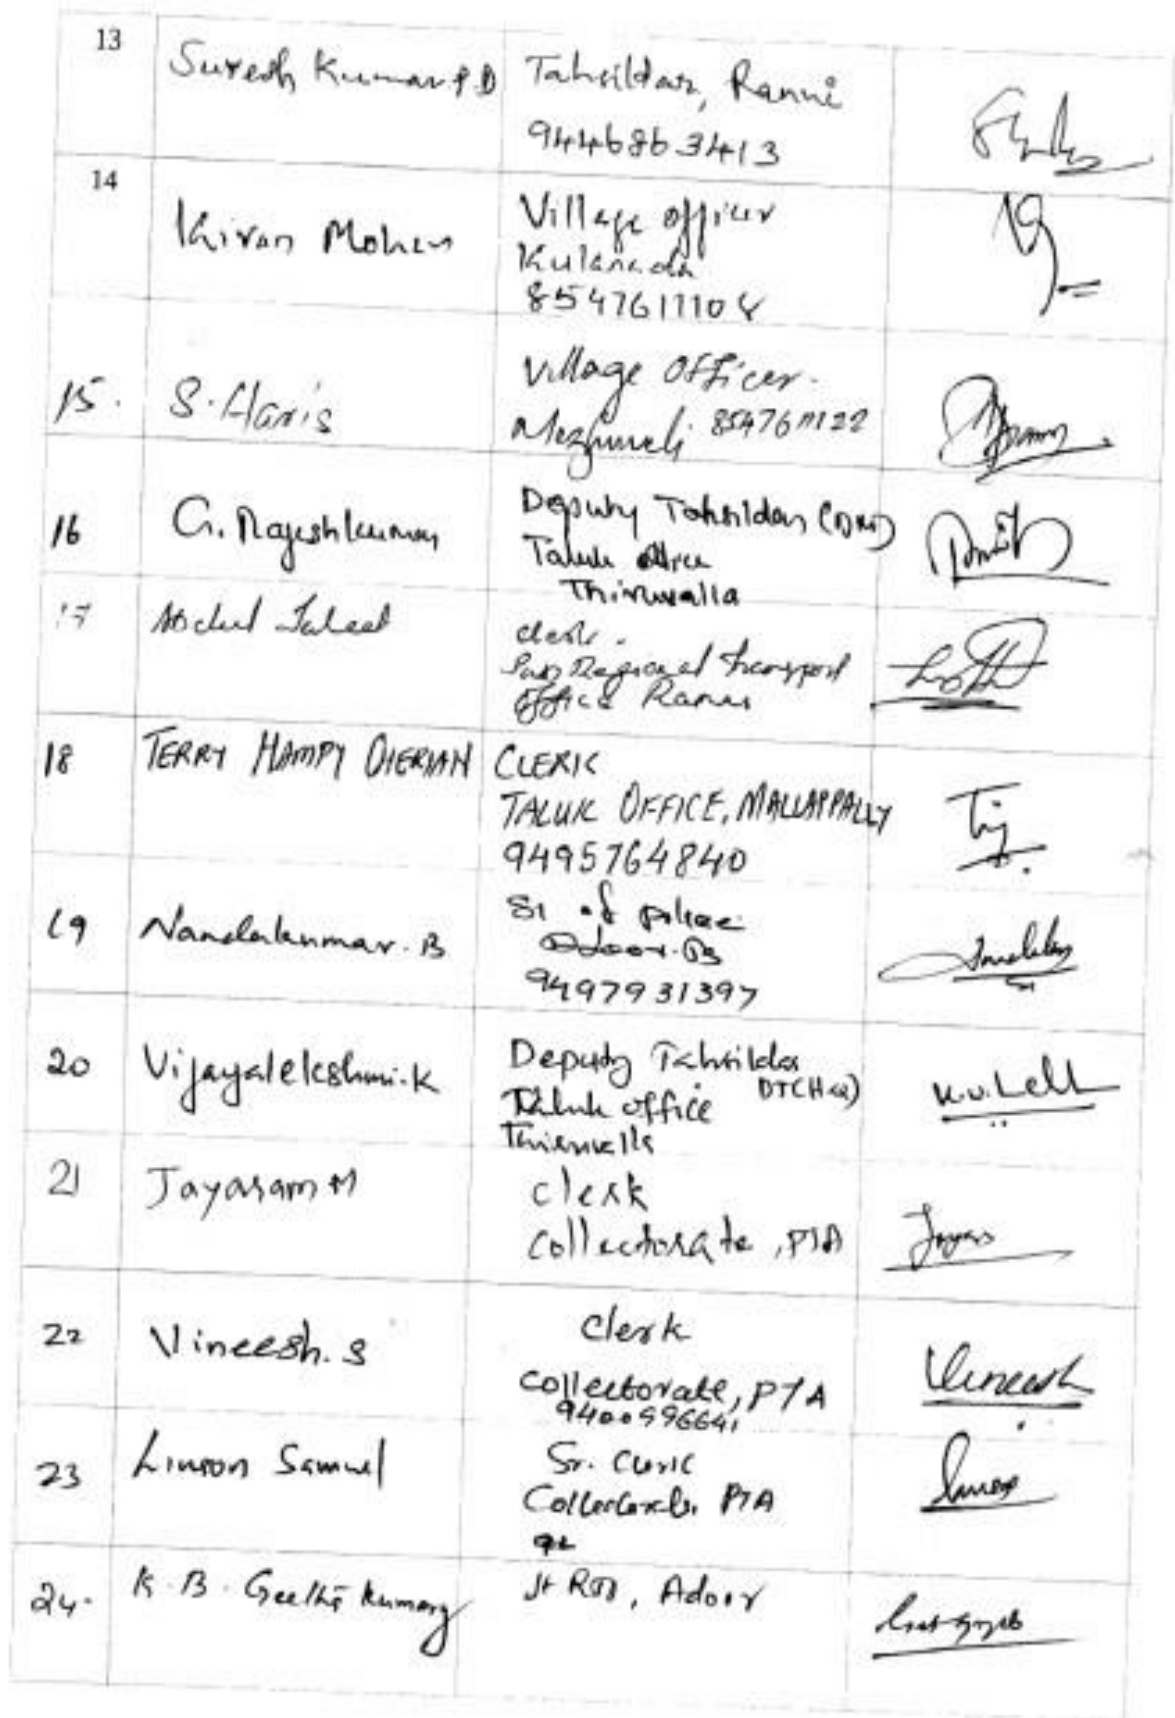 13 Suresh Kumar P.D Tahsildar, Ranni
9446863413
14 Kiran Mohan Village officer
Kulanada
8547611108
15. S. Haris Village Officer.
Mezhuveli 8547611122
16 G. Rajeshkumar Deputy Tahsildar
Taluk office
Thiruvalla
17 Abdul Jaleel clerk.
Regional transport
office
18 TERRY HAMPY CLERK
TALUK OFFICE, MALLAPPALLY
9495764840
19 Nandakumar. B SI of police
Adoor
9497931397
20 Vijayalekshmi.K Deputy Tahsildar
Taluk office DT(HQ)
Thiruvalla
21 Jayaram M clerk
Collectorate, PTA
22 Vineesh. S clerk
Collectorate, PTA Vineesh
9400996641
23 Linson Samuel Sr. Clerk
Collectorate, PTA
24. K. B. Geetha Kumary Jt RTO, Adoor